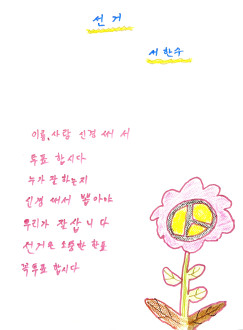 선 거
서한수
이름, 사람 신경 써 서
투표 합시다
누가 잘 하는지
신경 써서 뽑아야
우리가 잘 삽 니 다
선거은 소중한 한표
꼭투표 합시다